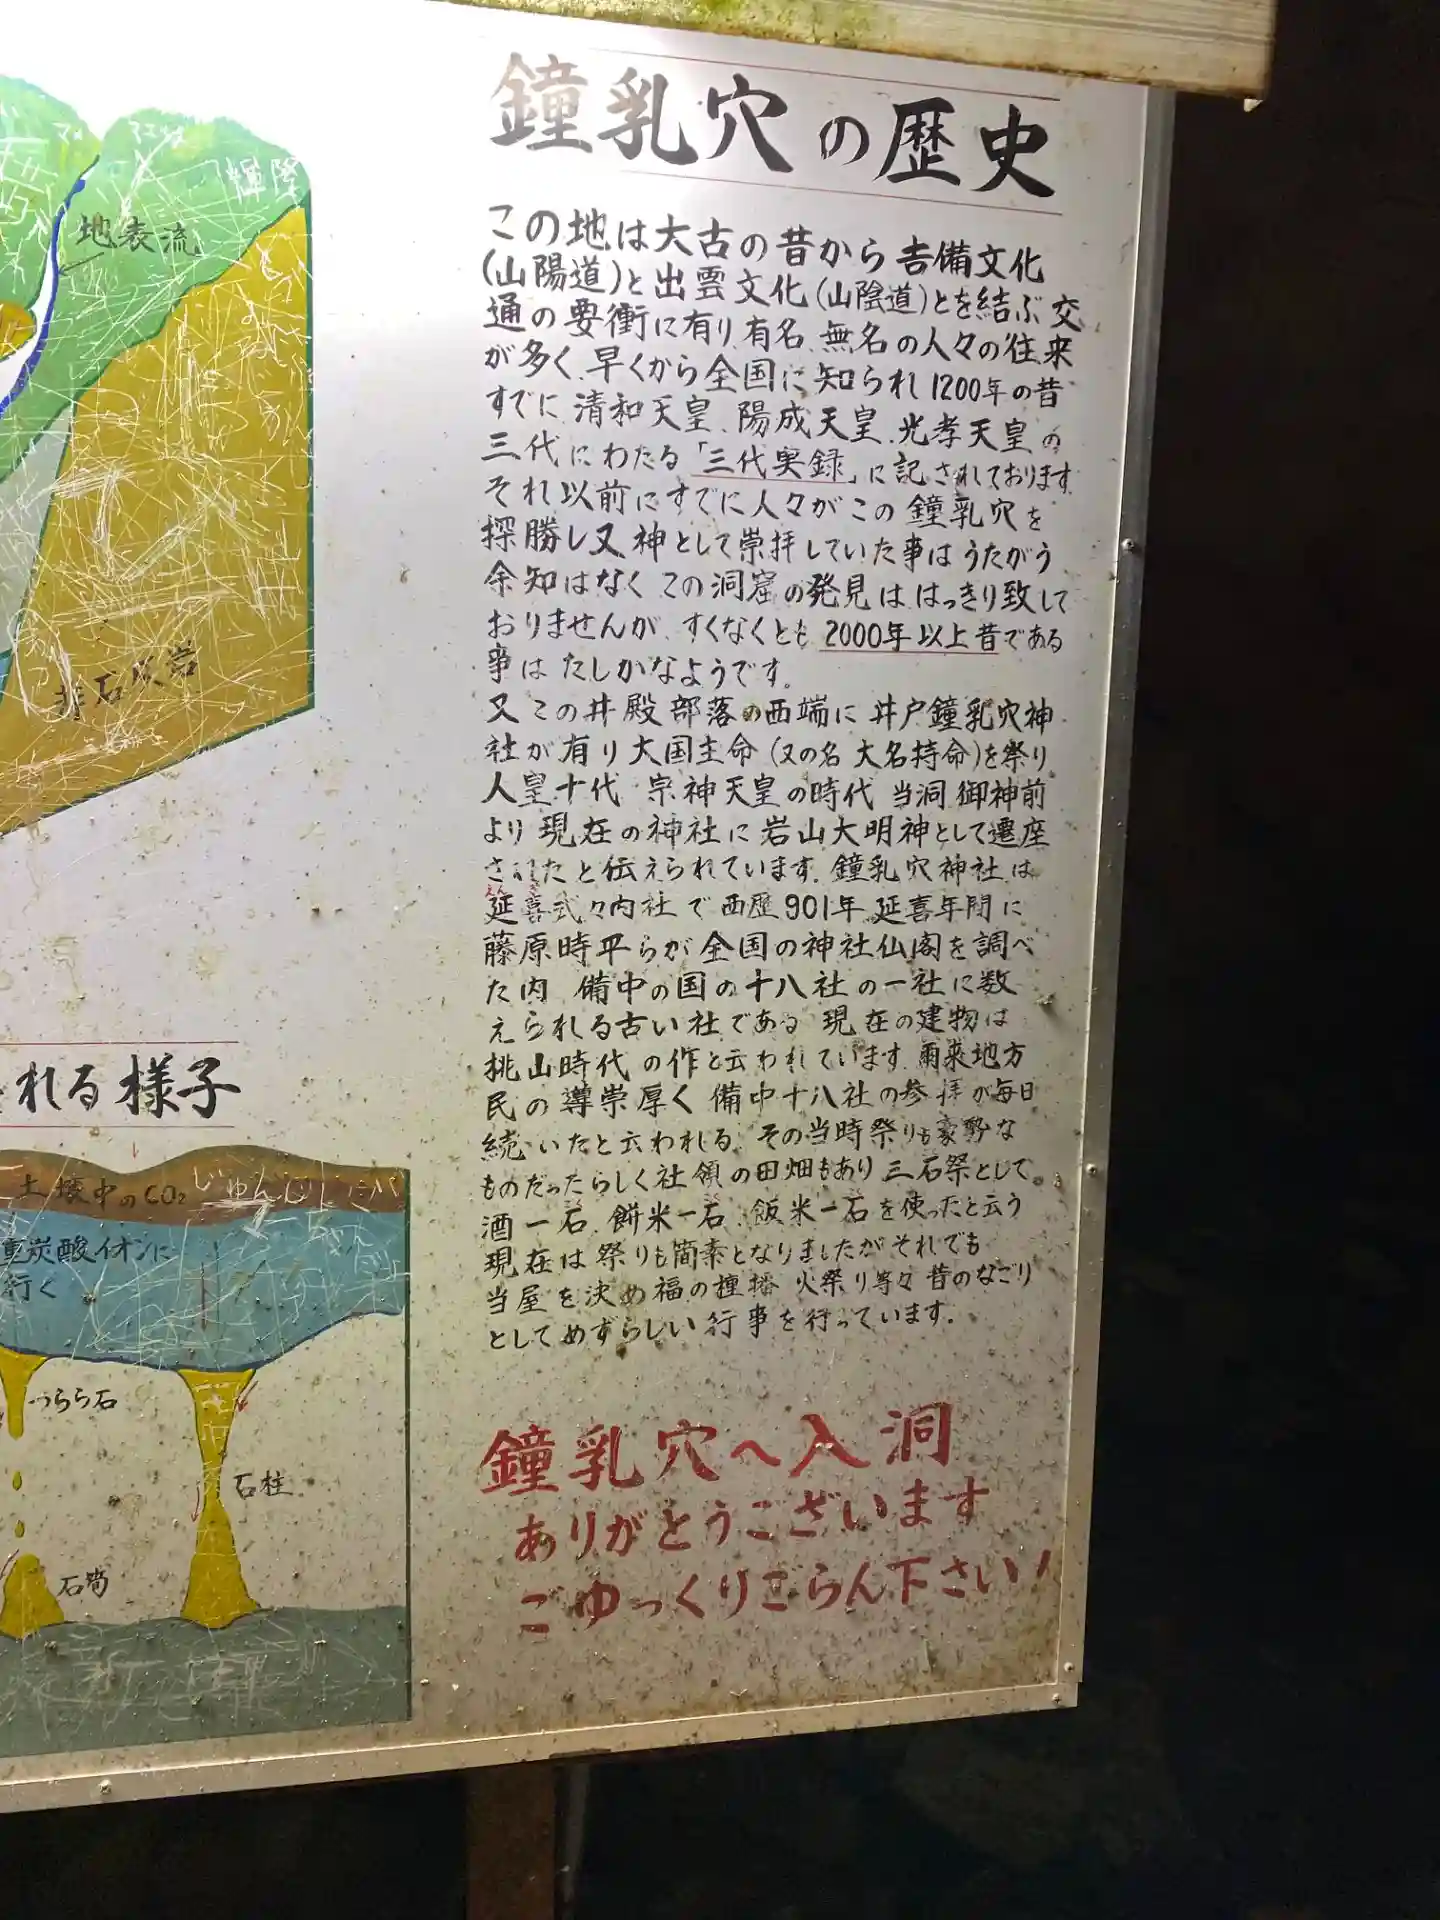 鐘乳穴の歴史
この地は大古の昔から吉備文化
(山陽道)と出雲文化(山陰道)とを結ぶ交
通の要衝に有り、有名、無名の人々の往来
が多く、早くから全国に知られ1200年の昔
すでに 清和天皇、陽成天皇、光孝天皇の
三代にわたる「三代実録」に記されております。
それ以前にすでに人々がこの鐘乳穴を
探勝し又神として崇拝していた事はうたがう
余知はなく この洞窟の発見は はっきり致して
おりませんが、すくなくとも 2000年以上昔である
事は たしかなようです。
又この井殿部落の西端に 井戸鐘乳穴神
社が有り大国主命(又の名 大名持命)を祭り、
人皇十代 宗神天皇の時代 当洞御神前
より現在の神社に岩山大明神として遷座
されたと伝えられています。鐘乳穴神社は
延喜式々内社で西歴901年 延喜年間に
藤原時平らが全国の神社仏閣を調べ
た内 備中の国の十八社の一社に数
えられる古い社である 現在の建物は
桃山時代の作と云われています。爾来地方
民の導崇厚く 備中十八社の参拝が毎日
続いたと云われる。その当時祭りも豪勢な
ものだったらしく社領の田畑もあり三石祭として
酒一石、餅米一石、飯米一石を使ったと云う
現在は祭りも簡素となりましたがそれでも
当屋を決め福の種播 火祭り等々昔のなごり
としてめずらしい行事を行っています。
鐘乳穴へ入洞
ありがとうございます
ごゆっくりごらん下さい!
地表流
輝隆
非石灰岩
れる様子
土壌中のCO₂
重炭酸イオンに
行く
つらら石
石柱
石筍